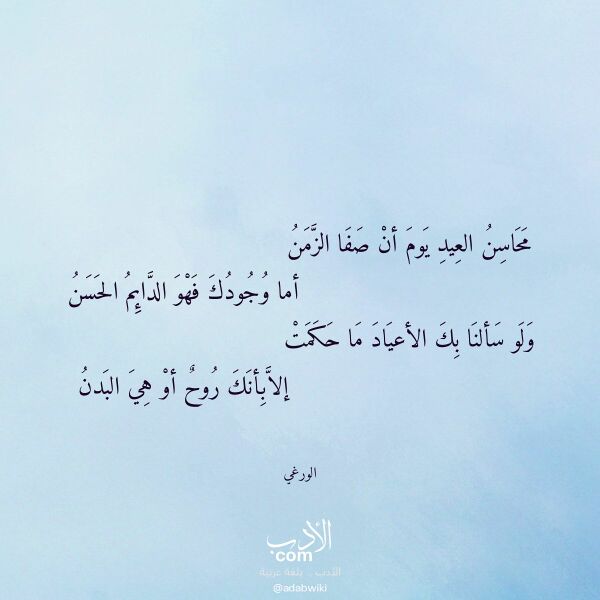 مَحَاسِنُ العِيدِ يَومَ أنْ صَفَا الزَّمَنُ
أما وُجُودُكَ فَهْوَ الدَّايِمُ الحَسَنُ
وَلَو سَألنَا بِكَ الأعيَادَ مَا حَكَمَتْ
إلاَّبِأنَكَ رُوحٌ أوْ هِيَ البَدنُ
الورغي
الأدب
com
الأدب .. بلغة عربية
@adabwiki